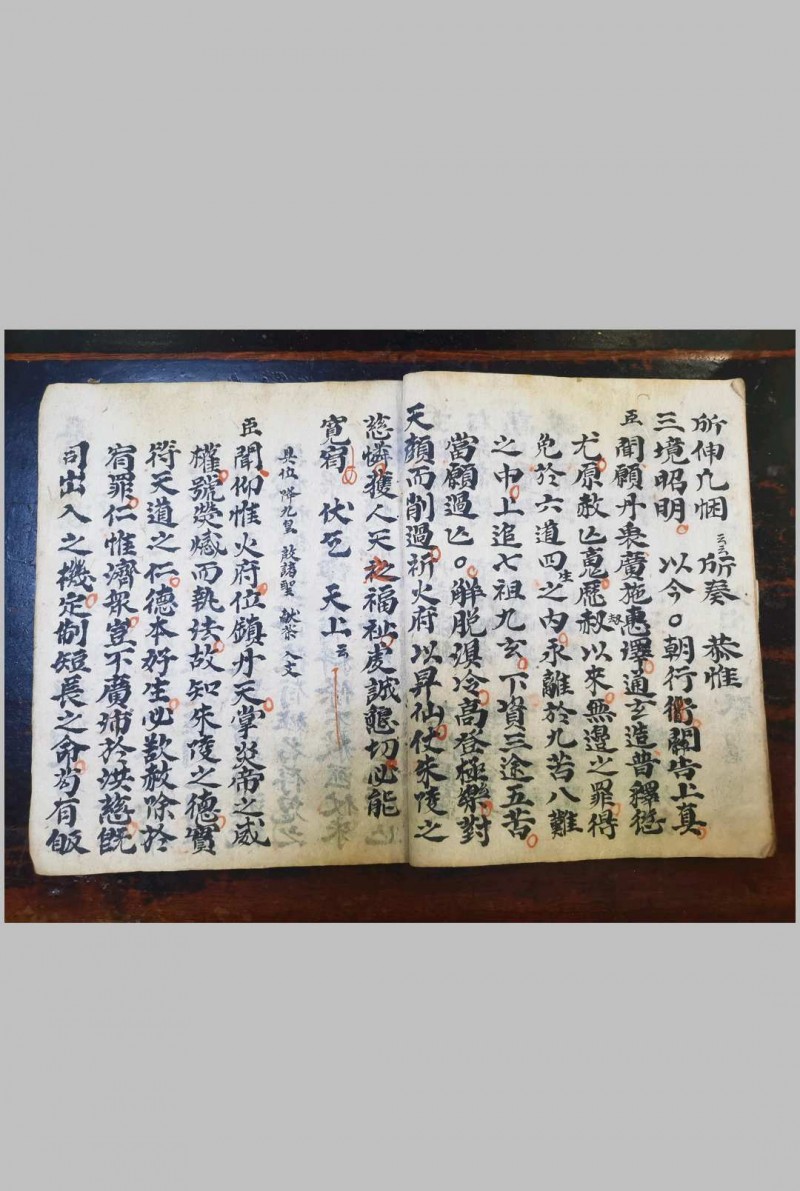 所伸凡悃 云云 所奏 恭惟
三境昭明 以今 朝行衛關告上真
臣聞願丹衷廣施惠澤通玄造普釋愆
尤原赦亡䰟歷劫以來無邊之罪得
免於六道四生之内永離於九苦八難
之中上追七祖九玄下資三途五苦
當願過亡 解脱須冷高登極樂對
天顏而削過祈火府以昇仙仗朱陵之
慈憐獲人天之福 虔誠懇切必能
寛宥 伏乞 天上云
具位 降九皇 啟諸聖 献茶 入文
臣聞仰惟火府位鎮丹天掌炎帝之威
權號熒惑而執法故知朱陵之德實
符天道之仁德本好生必数赦除於
宥罪仁惟濟衆豈不廣沛於洪慈既
司出入之機定制短長之命茍有皈